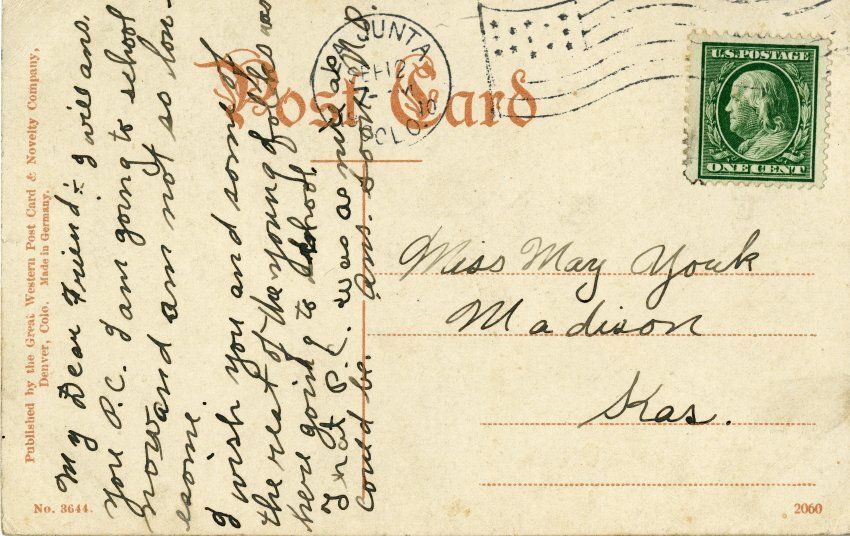 Published by the Great Western Post Card & Novelty Company,
Denver, Colo. Made in Germany.
No. 3644.
Post Card
LA JUNTA
SEP 12
10
COLO.
U.S. POSTAGE
ONE CENT
My Dear Friend:- I will ans.
you P.C. I am going to school
now and am not so lon-
esome.
I wish you and some of
the rest of the young folks was
here going to school.
That P.C. was as nice as
could be. Ans. soon M.P.
Miss May Youk
Madison
Kas.
2060